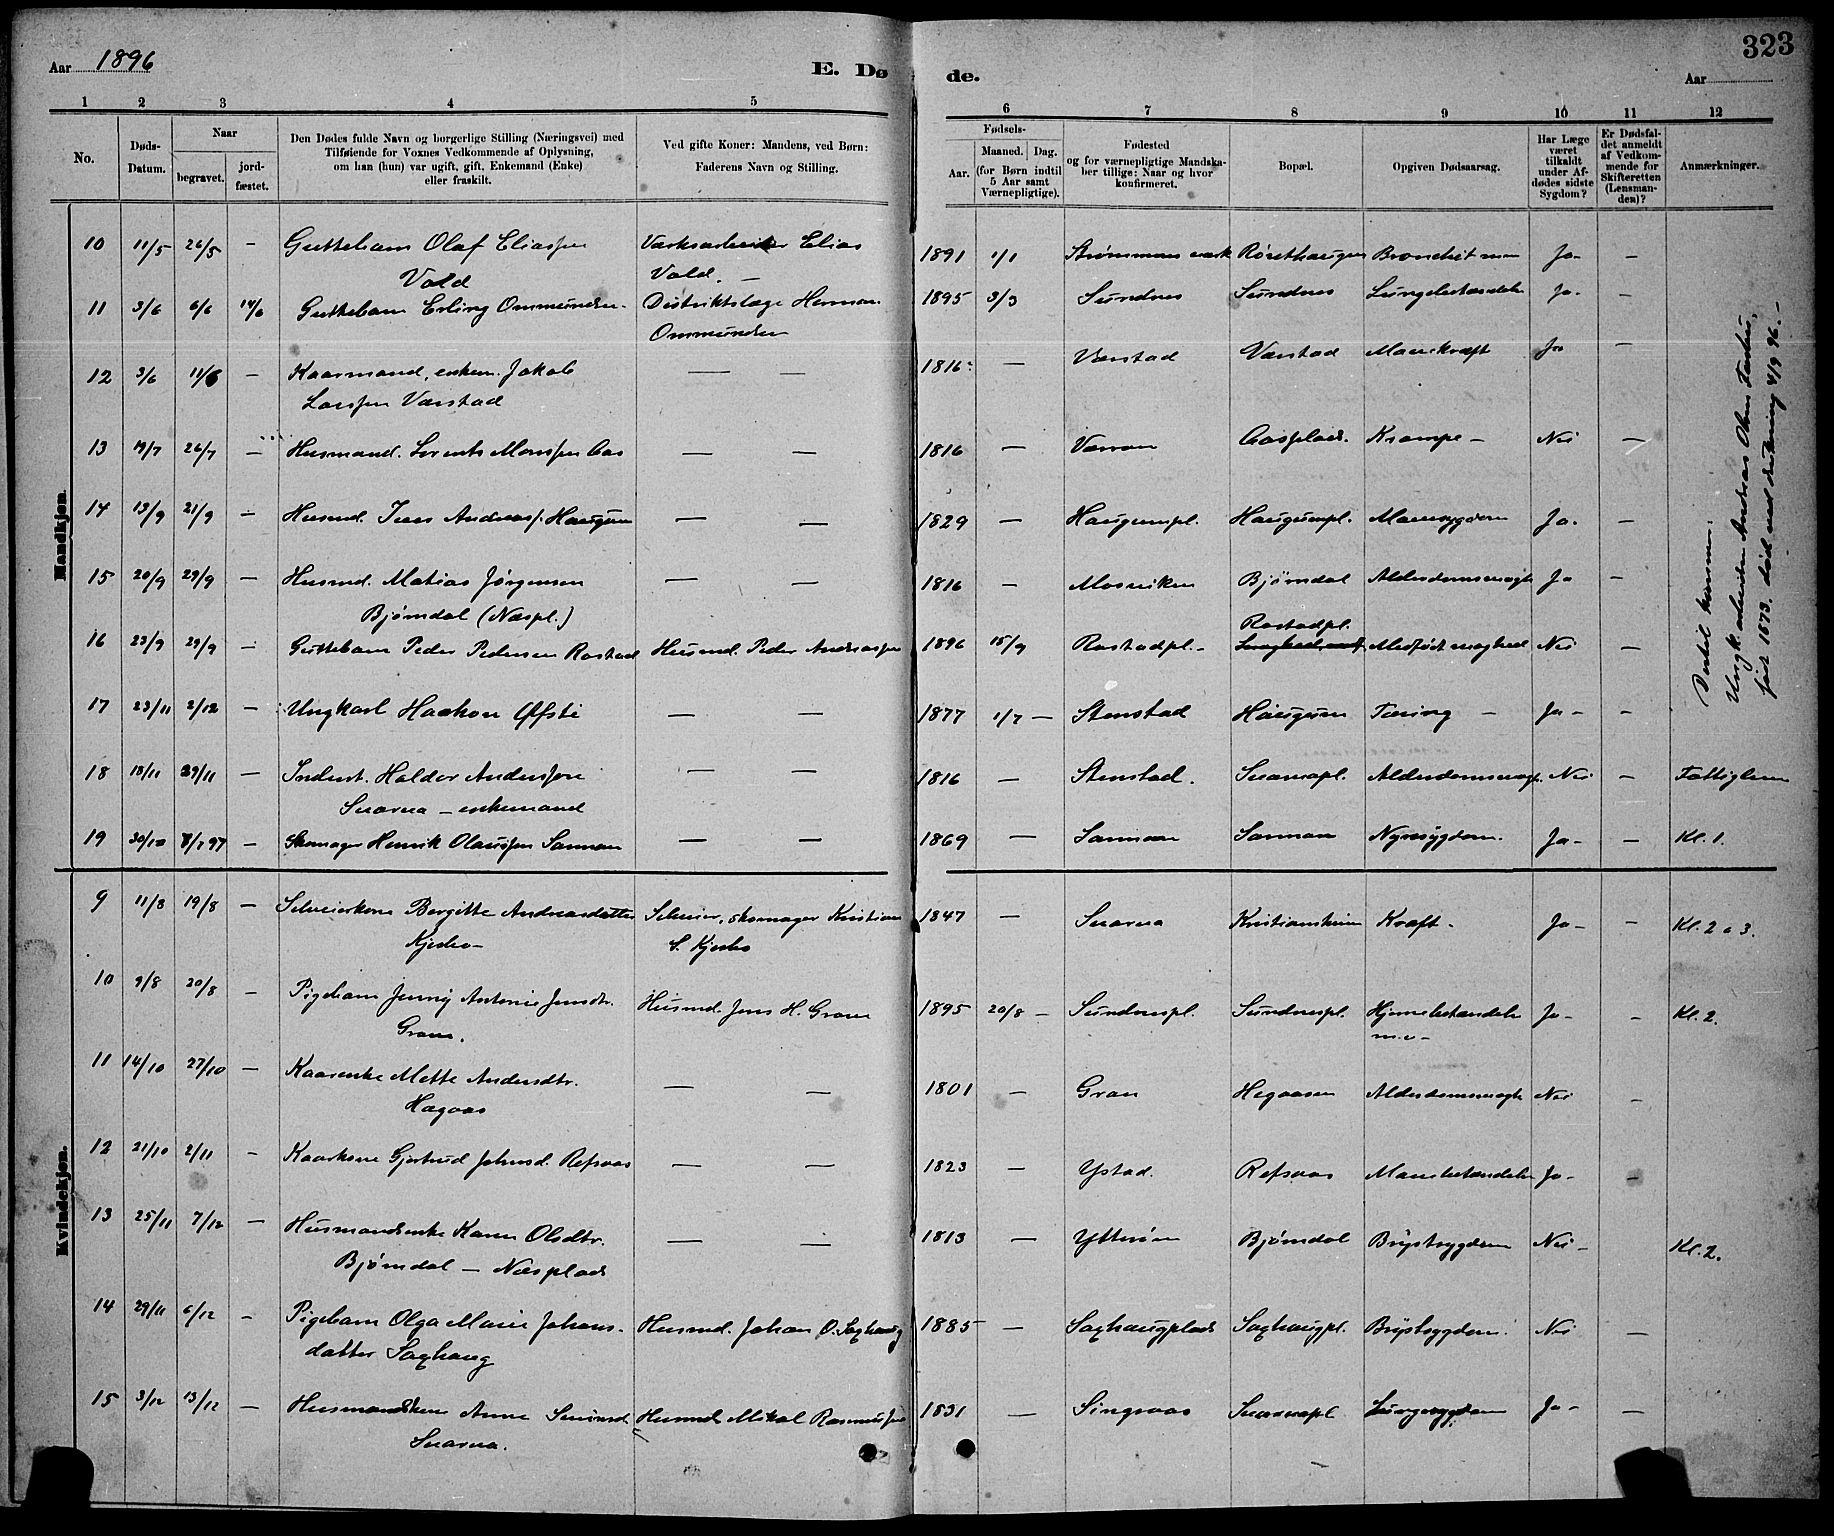 Aar 1896
E. Dø
de.
Aar
323
1 2 3 4 5 6 7 8 9 10 11 12
No.
Døds-Datum.
Naar
begravet.
jord-fæstet.
Den Dødes fulde Navn og borgerlige Stilling (Næringsvei) med
Tilføiende for Voxnes Vedkommende af Oplysning,
om han (hun) var ugift, gift, Enkemand (Enke)
eller fraskilt.
Ved gifte Koner: Mandens, ved Børn:
Faderens Navn og Stilling.
Fødsels-
Aar.
Maaned. Dag.
(for Børn indtil
5 Aar samt
Værnepligtige).
Fødested
og for værnepligtige Mandska-
ber tillige: Naar og hvor
konfirmeret.
Bopæl.
Opgiven Dødsaarsag.
Har Læge
været
tilkaldt
under Af-
dødes sidste
Sygdom?
Er Dødsfal-
det anmeldt
af Vedkom-
mende for
Skifteretten
(Lensman-
den)?
Anmærkninger.
Mandkjøn.
10 11/5 26/5 — Guttebarn Olaf Eliassen Værksarbeider Elias 1891 1/1 Strømmens værk Røsethaugen Bronchit Ja —
Vold Vold. —
11 3/6 6/6 14/6 Guttebarn Erling Ommundsen Distriktslæge Herman 1895 3/3 Sundnes Sundnes Lungebetændelse Ja —
Ommundsen
12 3/6 11/6 — Kaarmand, enkem. Jakob — — 1816 — Værstad Værstad Mavekræft Ja —
Larssen Værstad
13 19/7 26/7 — Husmand. Lorents Monssen Aas — — 1816 — Værran Aasplads. Krampe — Nei —
14 13/9 21/9 — Husmd. Andreas. Haugum — — 1829 — Haugumpl. Haugumpl. Mavesygdom Ja. —
15 20/9 29/9 — Husmd. Matias Jørgensen — — 1816 — Mosviken Bjørndal Alderdomssvagh. Ja —
Bjørndal (Næspl.)
16 23/9 29/9 — Guttebarn Peder Pedersen Rostad Husmd. Peder Andreassen 1896 15/9 Rostadpl. — Rostadpl. Medfødt svaghed Nei —
17 23/11 2/12 — Ungkarl Haakon Øfsti — — 1877 1/7 — Stenstad Haugum Tæring — Ja — —
18 18/11 29/11 — Inderst. Haldor Anderssen — — 1816 — Stenstad. Snavapl. Alderdomssvagh. Nei — Fattiglem
— enkemand
19 30/12 8/1 97 — Skomager Henrik Olaussen Sannan — — 1869 — Sannan Sannan Nyresygdom. Ja — — Kl. 1.
Dertil kommer:
Ungk. arbeider Andreas Olsen
født 1873. død ved drukning 4/9 96. —
Kvindekjøn.
9 11/8 19/8 — Selveierkone Bergitte Andreasdatter Selveier, skomager Kristian 1847 — Kristiansheim Kræft — Ja — — Kl. 2 o 3.
Kjesbo — S. Kjesbo
10 9/8 20/8 — Pigebarn Jenny Antonie Jensdtr. Husmd. Jens H. Gran 1895 20/8 — Sundnespl. Sundnespl. Hjernebetændelse Ja — — Kl. 2.
Gran. m. v —
11 14/10 27/10 — Kaarenke Mette Andersdtr. — — 1801 — Gran Hegaasen Alderdomssvagh Nei —
Hegaas
12 21/10 2/11 Kaarkone Gjertrud Johnsd. Refsaas — — 1823 — Ystad. Refsaas Mavebetændelse Ja — —
13 25/11 7/12 — Husmandsenke Karen Olsdtr. — — 1813 — Ytterøen Bjørndal Brystsygdom Nei — Kl. 2.
Bjørndal — Næsplads
14 29/11 6/12 — Pigebarn Olga Marie Johans- Husmd. Johan O. Saghaug 1885 — Saghaugplads Saghaugpl. Brystsygdom Nei —
datter Saghaug
15 3/12 13/12 — Husmandskone Anne Husmd Mikal Rasmussen 1831 — Singsaas Lungesygdom Ja — —